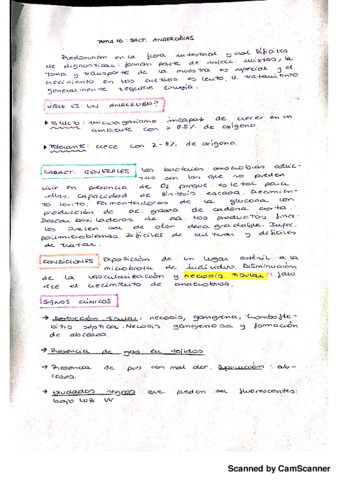 TEMA 16: BACT. ANAEROBIAS
Predominan en la flora intestinal y oral. Difíciles
de diagnosticar: forman parte de infecc mixtas, la
toma y transporte de la muestra es especial y el
crecimiento en los cultivos es lento. El tratamiento
generalmente requiere cirugía.
¿QUÉ ES UN ANAEROBIO?
Estricto: microorganismo incapaz de crecer en un
ambiente con > 0.5% de oxígeno
Tolerante: crece con 2-8% de oxígeno.
CARACT. GENERALES Las bacterias anaerobias estric-
tas son las que no pueden
vivir en presencia de O2 porque es letal para
ellas. Capacidad de síntesis escasa. Crecimien-
to lento. Fermentadoras de la glucosa con
producción de ac. grasos de cadena corta.
Descarboxiladoras de aa. Los productos fina-
les suelen ser de olor desagradable. Infecc.
polimicrobianas. Difíciles de cultivar y difíciles
de tratar.
CONDICIONES Exposición de un lugar estéril a la
microbiota de individuo. Disminución
de la vascularización y necrosis tisular: favo-
rece el crecimiento de anaerobios.
SIGNOS CLÍNICOS
→ Destrucción tisular: necrosis, gangrena, trombofle-
bitis séptica. Necrosis gangrenosa y formación
de abscesos.
→ Presencia de gas en tejidos
→ Presencia de pus con mal olor. Supuración: abs-
cesos.
→ Exudados negros que pueden ser fluorescentes
bajo luz UV
Scanned by CamScanner